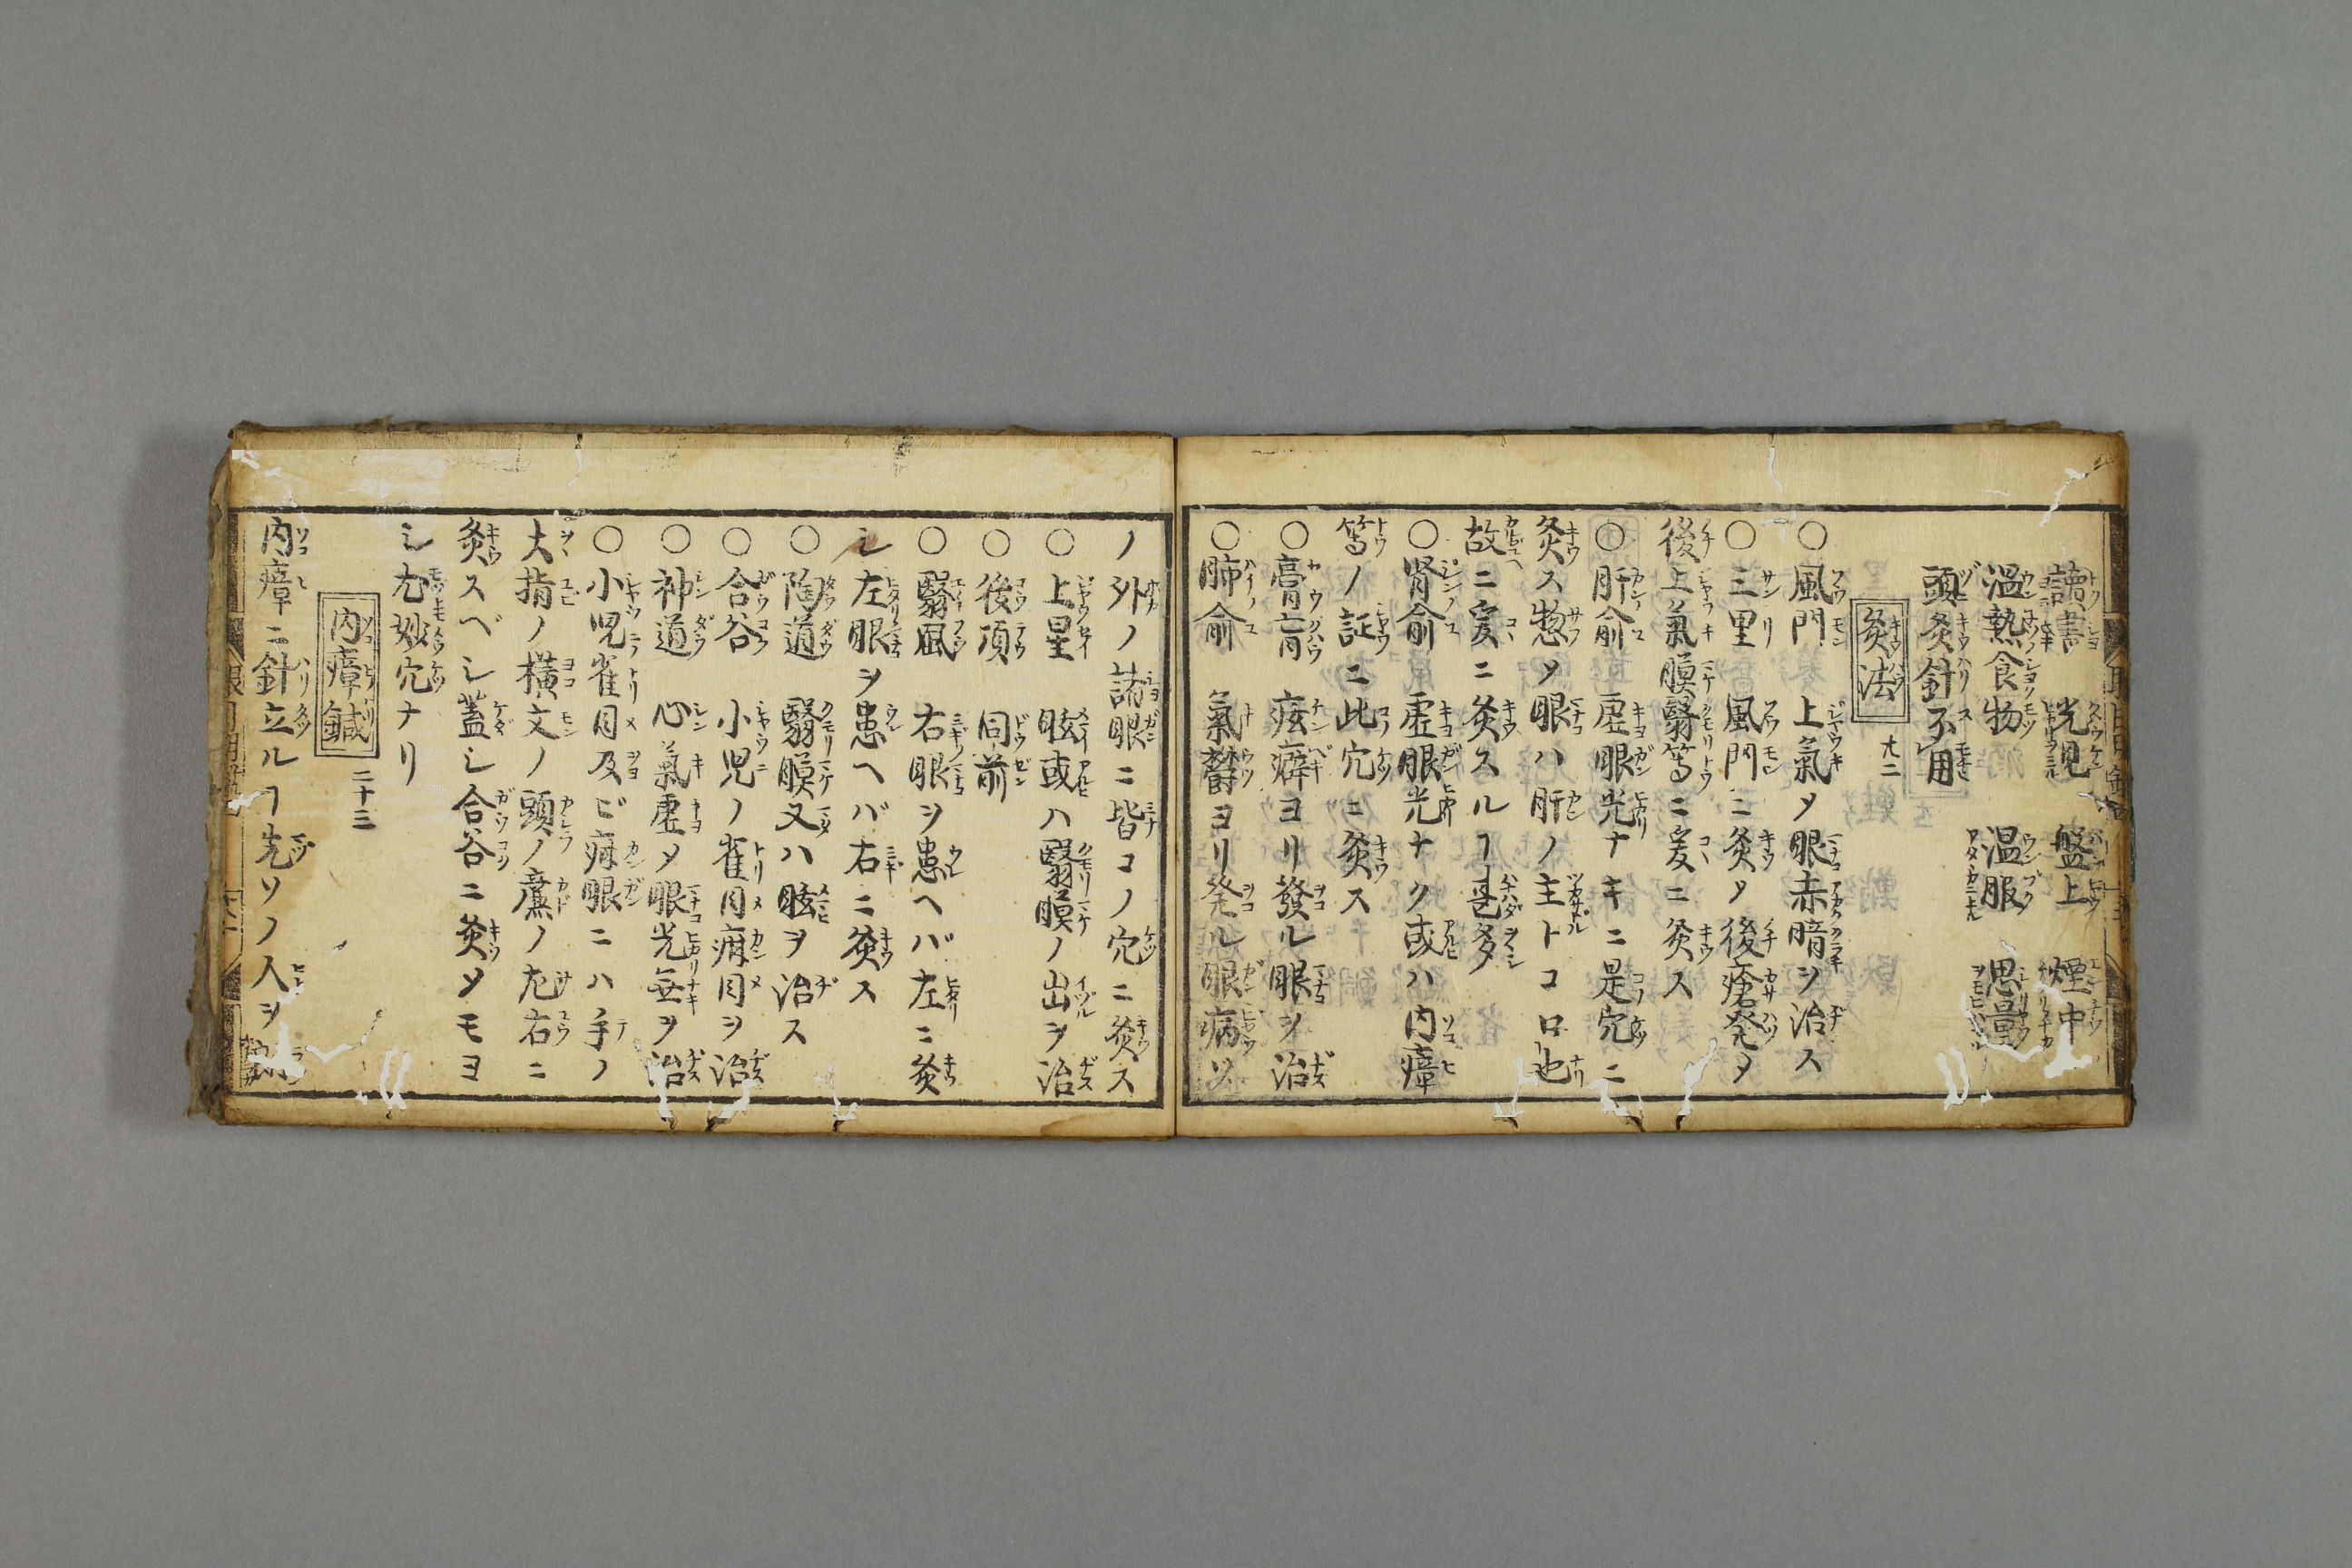 讀書　光見　盤上　煙中
温熱食物　温服　思量
頭灸針不用
灸法　廾二
○風門　上氣〆眼赤暗ヲ治ス
○三里　風門ニ灸〆後瘡発〆
後上氣膜翳等ニ爰ニ灸ス
○肝俞　虚眼光ナキニ是穴ニ
灸ス惣ソ眼ハ肝ノ主トコロ也
故ニ爰ニ灸スルヿ甚多
○腎俞　虚眼光ナク或ハ内瘴
等ノ証ニ此穴ニ灸ス
○膏肓　痃癖ヨリ發ル眼ヲ治
○肺俞　氣欝ヨリ発ル眼病ソ
ノ外ノ諸眼ニ皆コノ穴ニ灸ス
○上星　眩或ハ翳膜ノ出ヲ治
○後項　同前
○翳風　右眼ヲ患ヘバ左ニ灸
シ左眼ヲ患ヘバ右ニ灸ス
○陶道　翳膜又ハ眩ヲ治ス
○合谷　小児ノ雀目痳目ヲ治
○神道　心氣虚〆眼光無ヲ治
○小児雀目及ビ疳眼ニハ手ノ
大指ノ横文ノ頭ノ廉ノ左右ニ
灸スベシ蓋シ合谷ニ灸〆モヨ
シ尤妙穴ナリ
内瘴鍼　二十三
内瘴ニ針立ルヿ先ソノ人ヲ